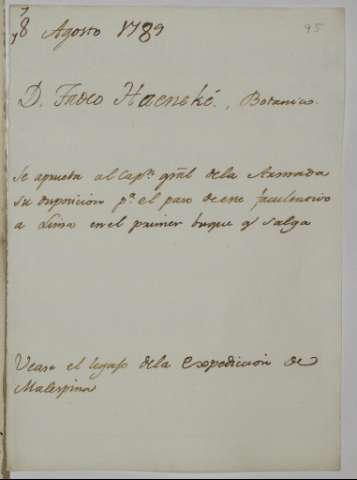 8 Agosto 1789
95
D. Tadeo Haenské., Botanico.
Se aprueba al Capn. gral de la Armada
su disposicion pa. el paso de este facultativo
a Lima en el primer buque q salga
Vease el legajo de la Expedicion de
Malespina